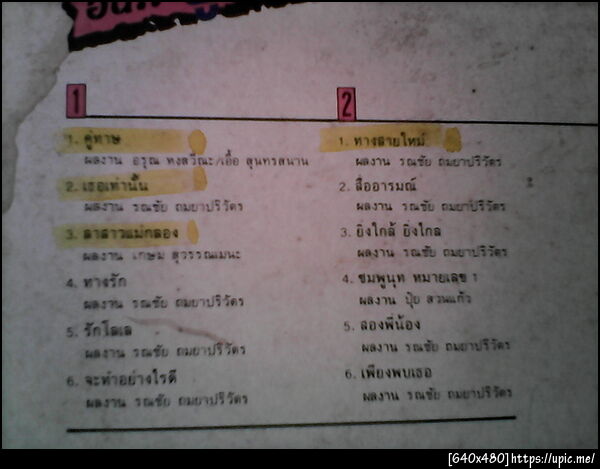 1
1. คู่ทาษ
ผลงาน อรุณ หงสวีณะ/เอื้อ สุนทรสนาน
2. เธอเท่านั้น
ผลงาน รณชัย ถมยาปริวัตร
3. ลาสาวแม่กลอง
ผลงาน เกษม สุวรรณเมนะ
4. ทางรัก
ผลงาน รณชัย ถมยาปริวัตร
5. รักโลเล
ผลงาน รณชัย ถมยาปริวัตร
6. จะทำอย่างไรดี
ผลงาน รณชัย ถมยาปริวัตร
2
1. ทางสายใหม่
ผลงาน รณชัย ถมยาปริวัตร
2. สื่ออารมณ์
ผลงาน รณชัย ถมยาปริวัตร
3. ยิ่งใกล้ ยิ่งไกล
ผลงาน รณชัย ถมยาปริวัตร
4. ชมพูนุท หมายเลข 1
ผลงาน ปุ้ย สวนแก้ว
5. สองพี่น้อง
ผลงาน รณชัย ถมยาปริวัตร
6. เพียงพบเธอ
ผลงาน รณชัย ถมยาปริวัตร
[640x480]https://upic.me/